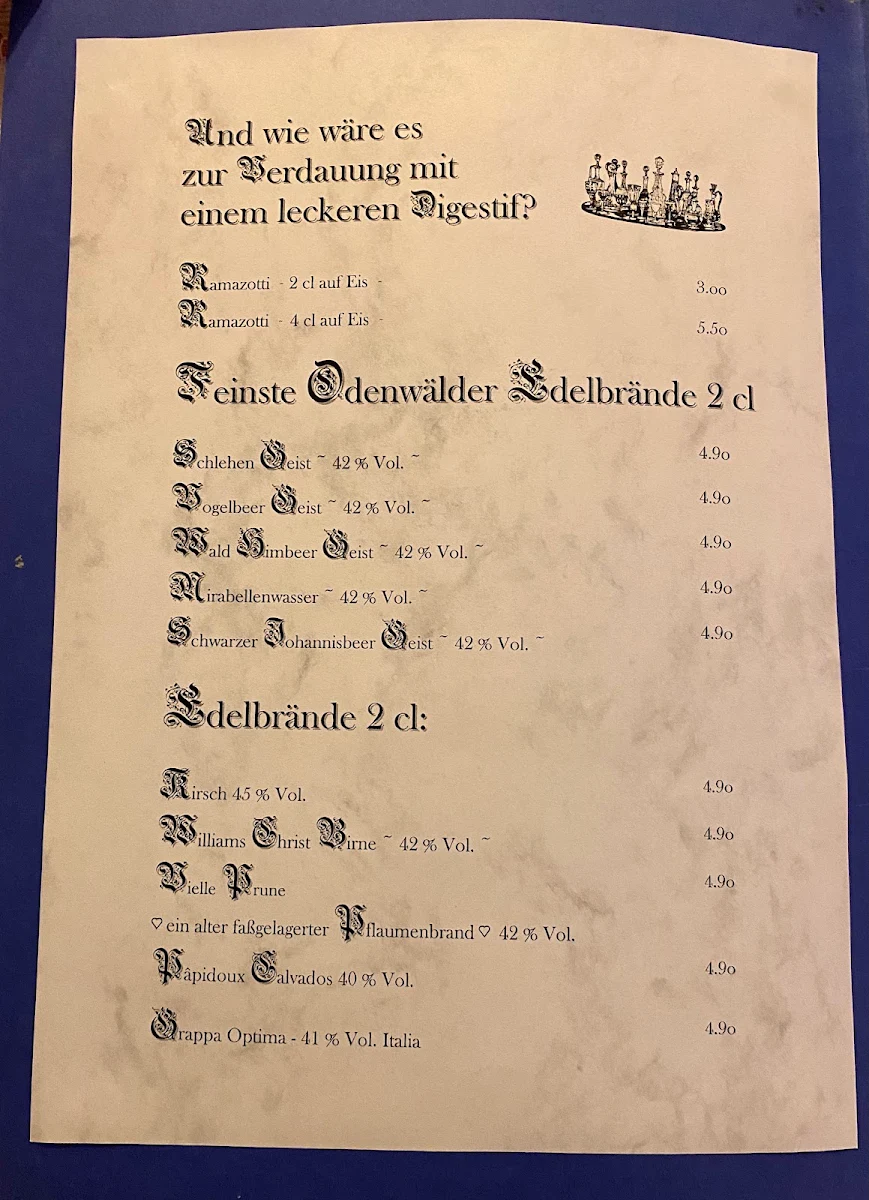 Und wie wäre es
zur Verdauung mit
einem leckeren Digestif?
Ramazotti - 2 cl auf Eis - 3.00
Ramazotti - 4 cl auf Eis - 5.50
Feinste Odenwälder Edelbrände 2 cl
Schlehen Geist ~ 42 % Vol. ~ 4.90
Vogelbeer Geist ~ 42 % Vol. ~ 4.90
Wald Himbeer Geist ~ 42 % Vol. ~ 4.90
Mirabellenwasser ~ 42 % Vol. ~ 4.90
Schwarzer Johannisbeer Geist ~ 42 % Vol. ~ 4.90
Edelbrände 2 cl:
Kirsch 45 % Vol. 4.90
Williams Christ Birne ~ 42 % Vol. ~ 4.90
Vielle Prune 4.90
♡ ein alter faßgelagerter Pflaumenbrand ♡ 42 % Vol.
Pâpidoux Calvados 40 % Vol. 4.90
Grappa Optima - 41 % Vol. Italia 4.90